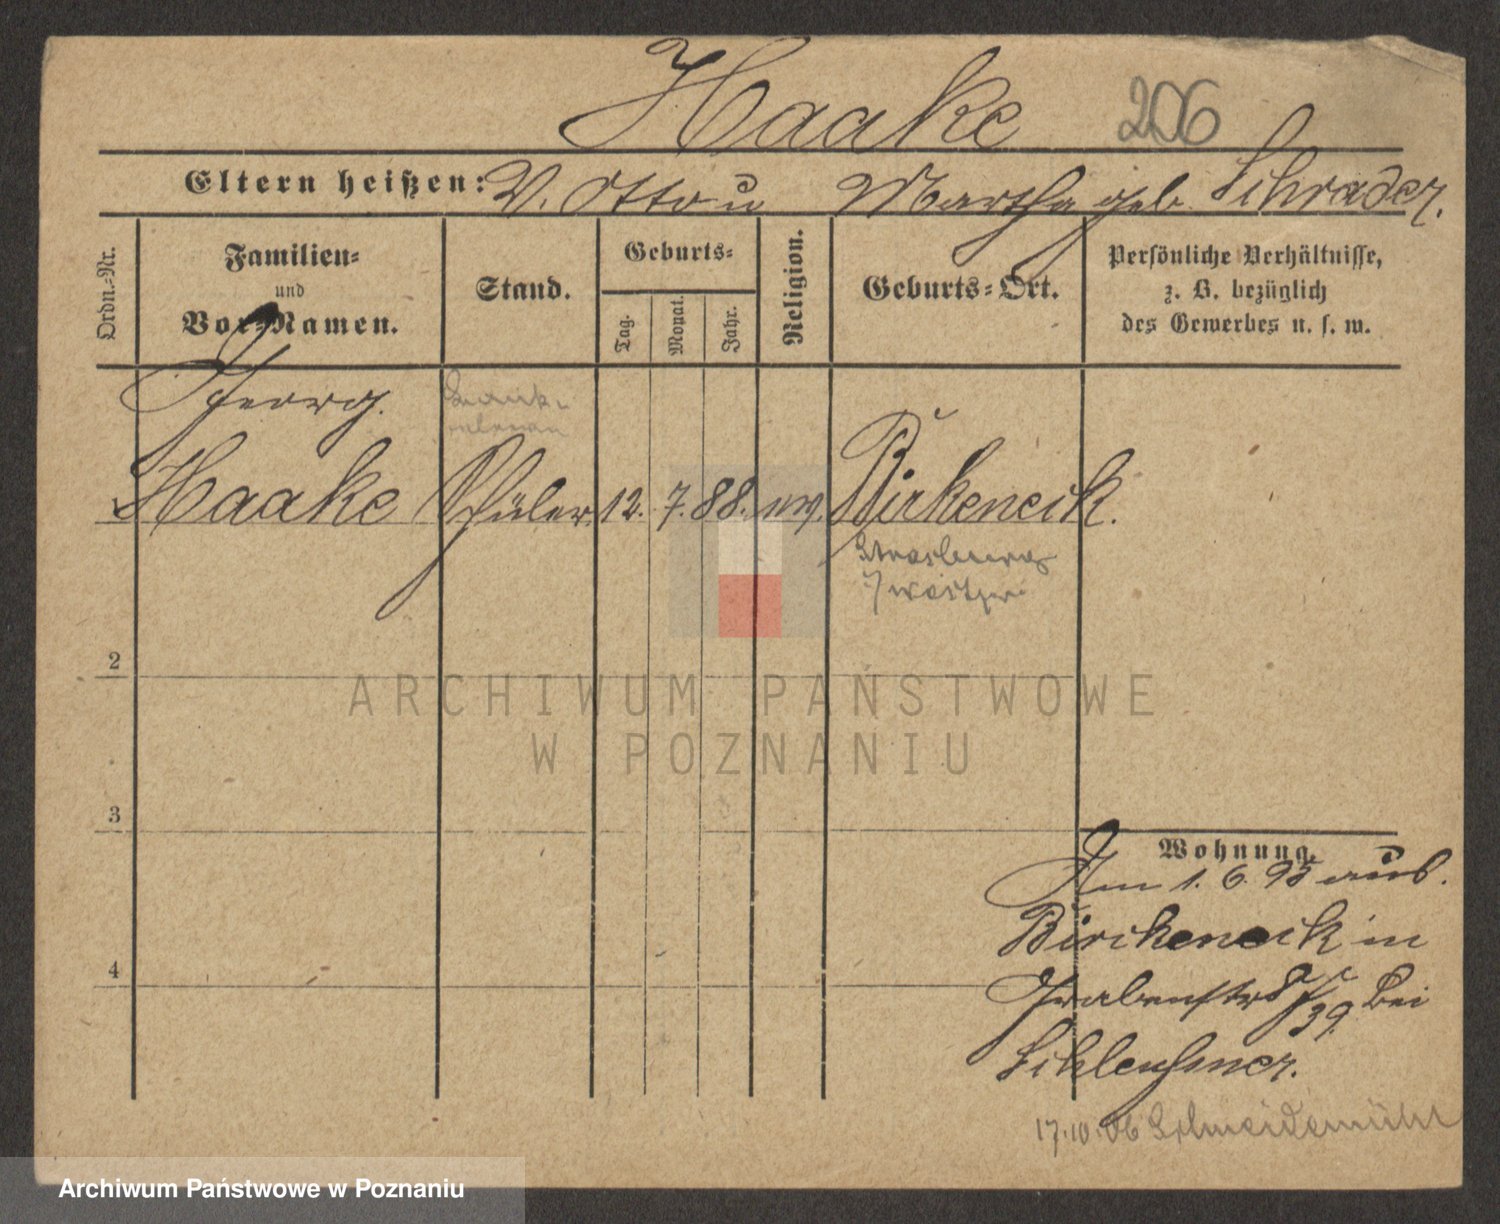 Haake 206
Eltern heißen: V. Otto u Martha geb. Schrader.
Ordn.-Nr.
Familien-
und
Vor-Namen.
Stand.
Geburts-
Tag.
Monat.
Jahr.
Religion.
Geburts-Ort.
Persönliche Verhältnisse,
z. B. bezüglich
des Gewerbes u. s. w.
Georg
Haake Schüler 12. 7. 88. ev. Birkeneck.
Strasburg
Westpr.
2
ARCHIWUM PAŃSTWOWE
W POZNANIU
3
Wohnung.
Am 1. 6. 95 aus
Birckeneck in
Grabenstr 39. bei
Schleusener.
4
17.10.06 Schneidemühl
Archiwum Państwowe w Poznaniu